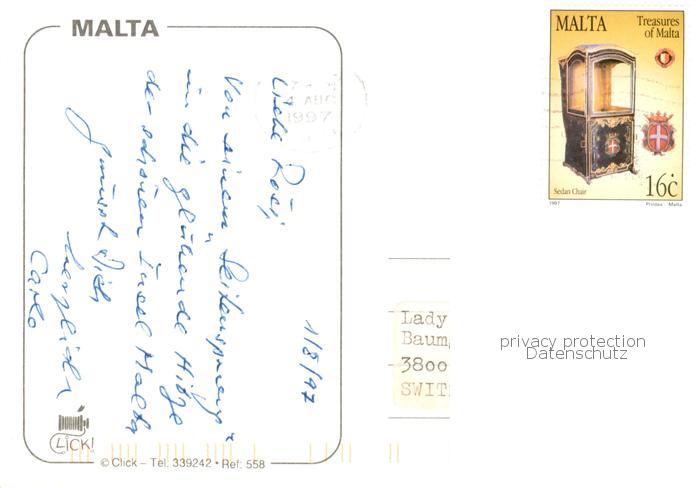 MALTA
1/8/97
Liebe Rösi,
Von einem "Seitensprung"
in die glühende Hitze
der schönen Insel Malta
grüsst Dich
herzlich
Carlo
CLICK!
© Click – Tel. 339242 • Ref: 558
AUG
1997
MALTA
Treasures
of Malta
Sedan Chair
16c
1997
Printex Malta
Lady
Baum
3800
SWIT
privacy protection
Datenschutz